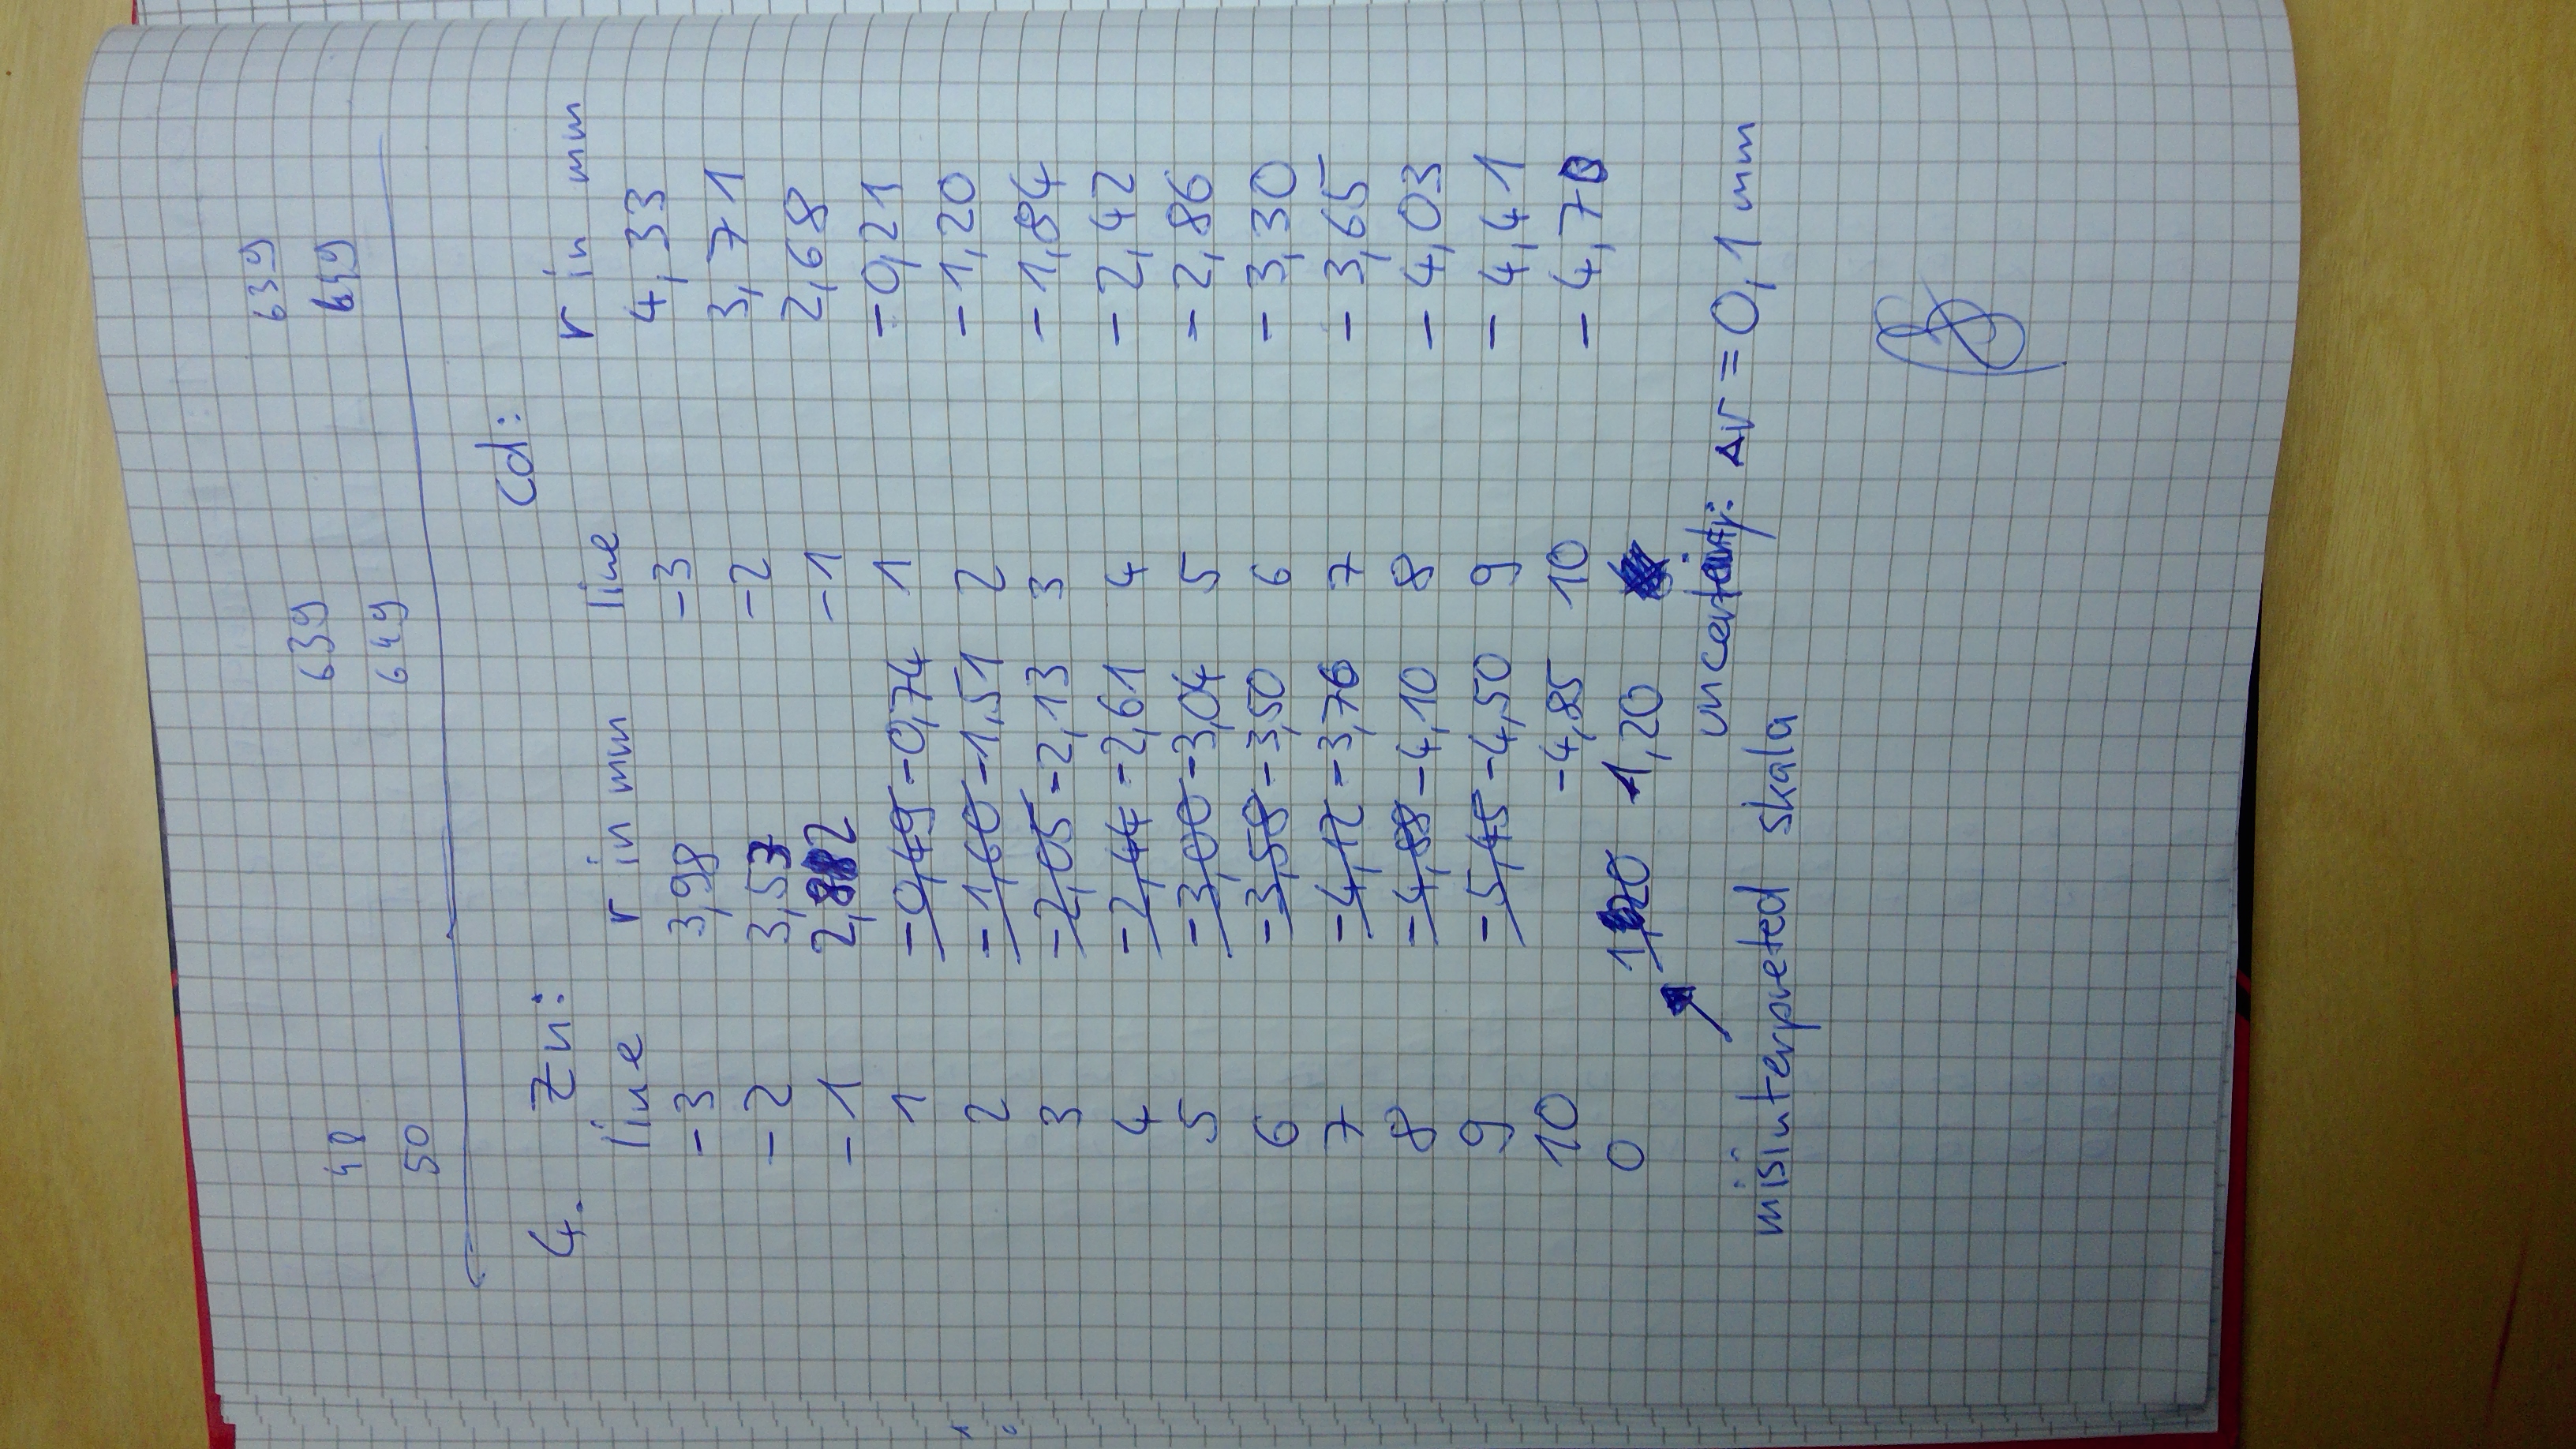 48 639 639
50 649 649
4. Zn: Cd:
line r in mm line r in mm
-3 3,98 -3 4,33
-2 3,57 -2 3,71
-1 2,82 -1 2,68
1 -0,49 -0,74 1 -0,21
2 -1,60 -1,51 2 -1,20
3 -2,05 -2,13 3 -1,84
4 -2,44 -2,61 4 -2,42
5 -3,00 -3,04 5 -2,86
6 -3,58 -3,50 6 -3,30
7 -4,12 -3,76 7 -3,65
8 -4,88 -4,10 8 -4,03
9 -5,45 -4,50 9 -4,41
10 -4,85 10 -4,70
0 1,20 1,20
uncertainty: Δr = 0,1 mm
misinterpreted skala